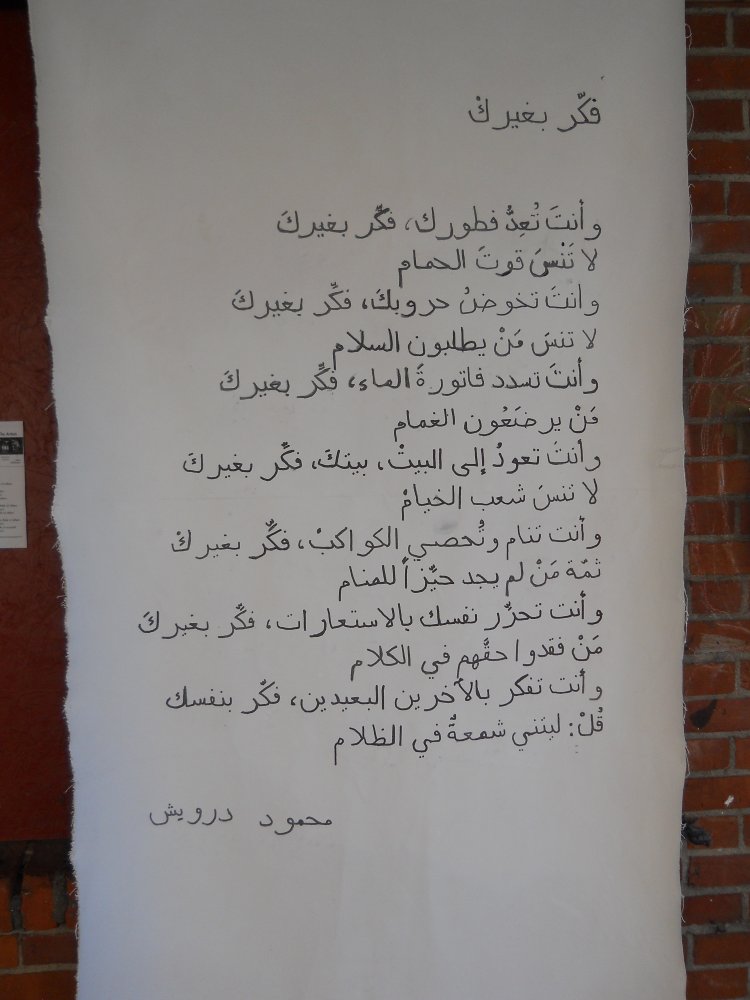 فكّر بغيركْ
وأنتَ تُعِدُّ فطورك، فكِّر بغيركَ
لا تَنْسَ قوتَ الحمام
وانتَ تخوضُ حروبكَ، فكِّر بغيركَ
لا تنسَ مَنْ يطلبون السلام
وأنتَ تسدد فاتورةَ الماء، فكِّر بغيركَ
مَنْ يرضَعُون الغمام
وأنتَ تعودُ إلى البيتْ، بيتكَ، فكّر بغيركَ
لا تنسَ شعب الخيامْ
وأنت تنام وتُحصي الكواكبْ، فكِّر بغيركْ
ثمّة مَنْ لم يجد حيّزاً للمنام
وأنت تحرّر نفسك بالاستعارات، فكّر بغيركَ
مَنْ فقدوا حقَّهم في الكلام
وأنت تفكر بالآخرين البعيدين، فكّر بنفسك
قُلْ: ليتني شمعةٌ في الظلام
محمود درويش